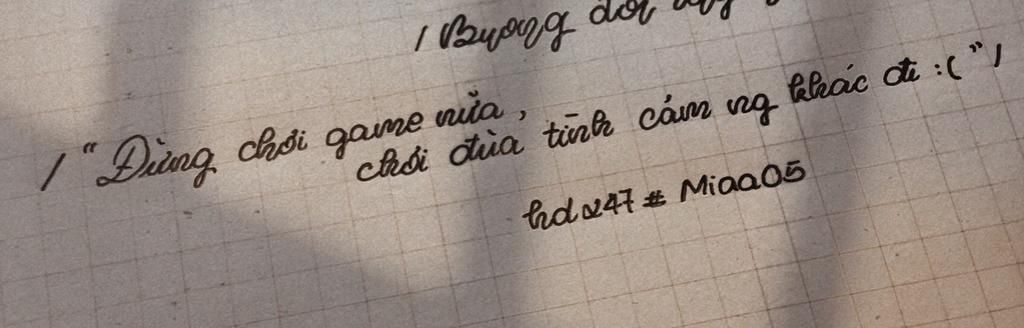 / Buông đôi
/ "Đừng chơi game nữa,
chơi đùa tình cảm ng khác đi :( "/
hdx247 # Miaa05